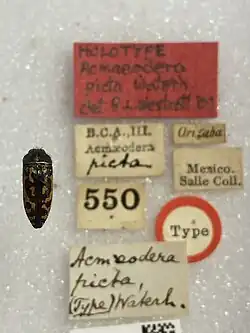 HOLOTYPE
Acmaeodera
picta Waterh
det
B.C.A., III.
Acmæodera
picta.
Orizaba.
Mexico.
Salle Coll.
550
Type
Acmæodera
picta,
(Type) Waterh.